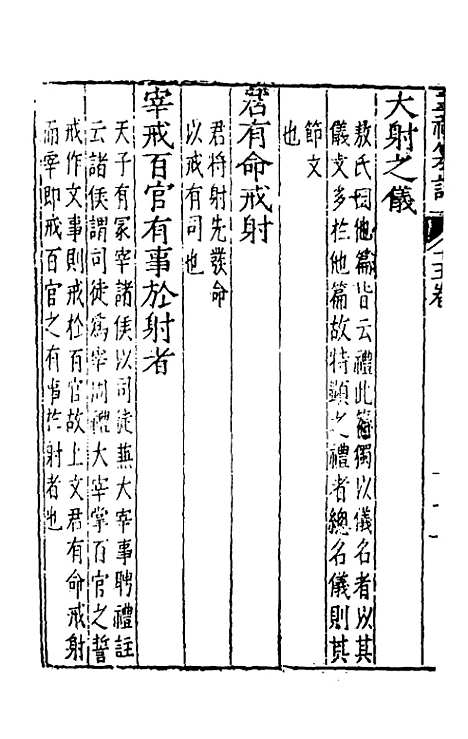 大射之儀
敖氏曰他篇皆云禮此篇獨以儀名者以其
儀文多於他篇故特顯之禮者總名儀則其
節文
也
君有命戒射
君將射先發命
以戒有司也
宰戒百官有事於射者
天子有冢宰諸侯以司徒兼大宰事聘禮註
云諸侯謂司徒爲宰周禮大宰掌百官之誓
戒作文事則戒於百官故上文君有命戒射
而宰即戒百官之有事於射者也